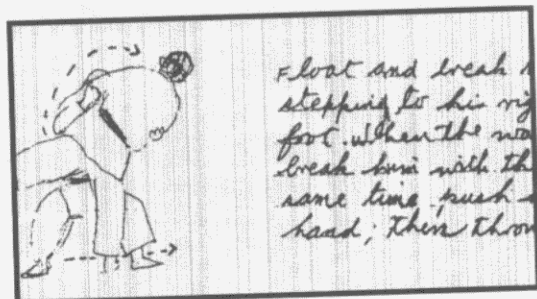 Float and break h
stepping to his rig
foot. When the wo
break him with th
same time push
hand; then throw